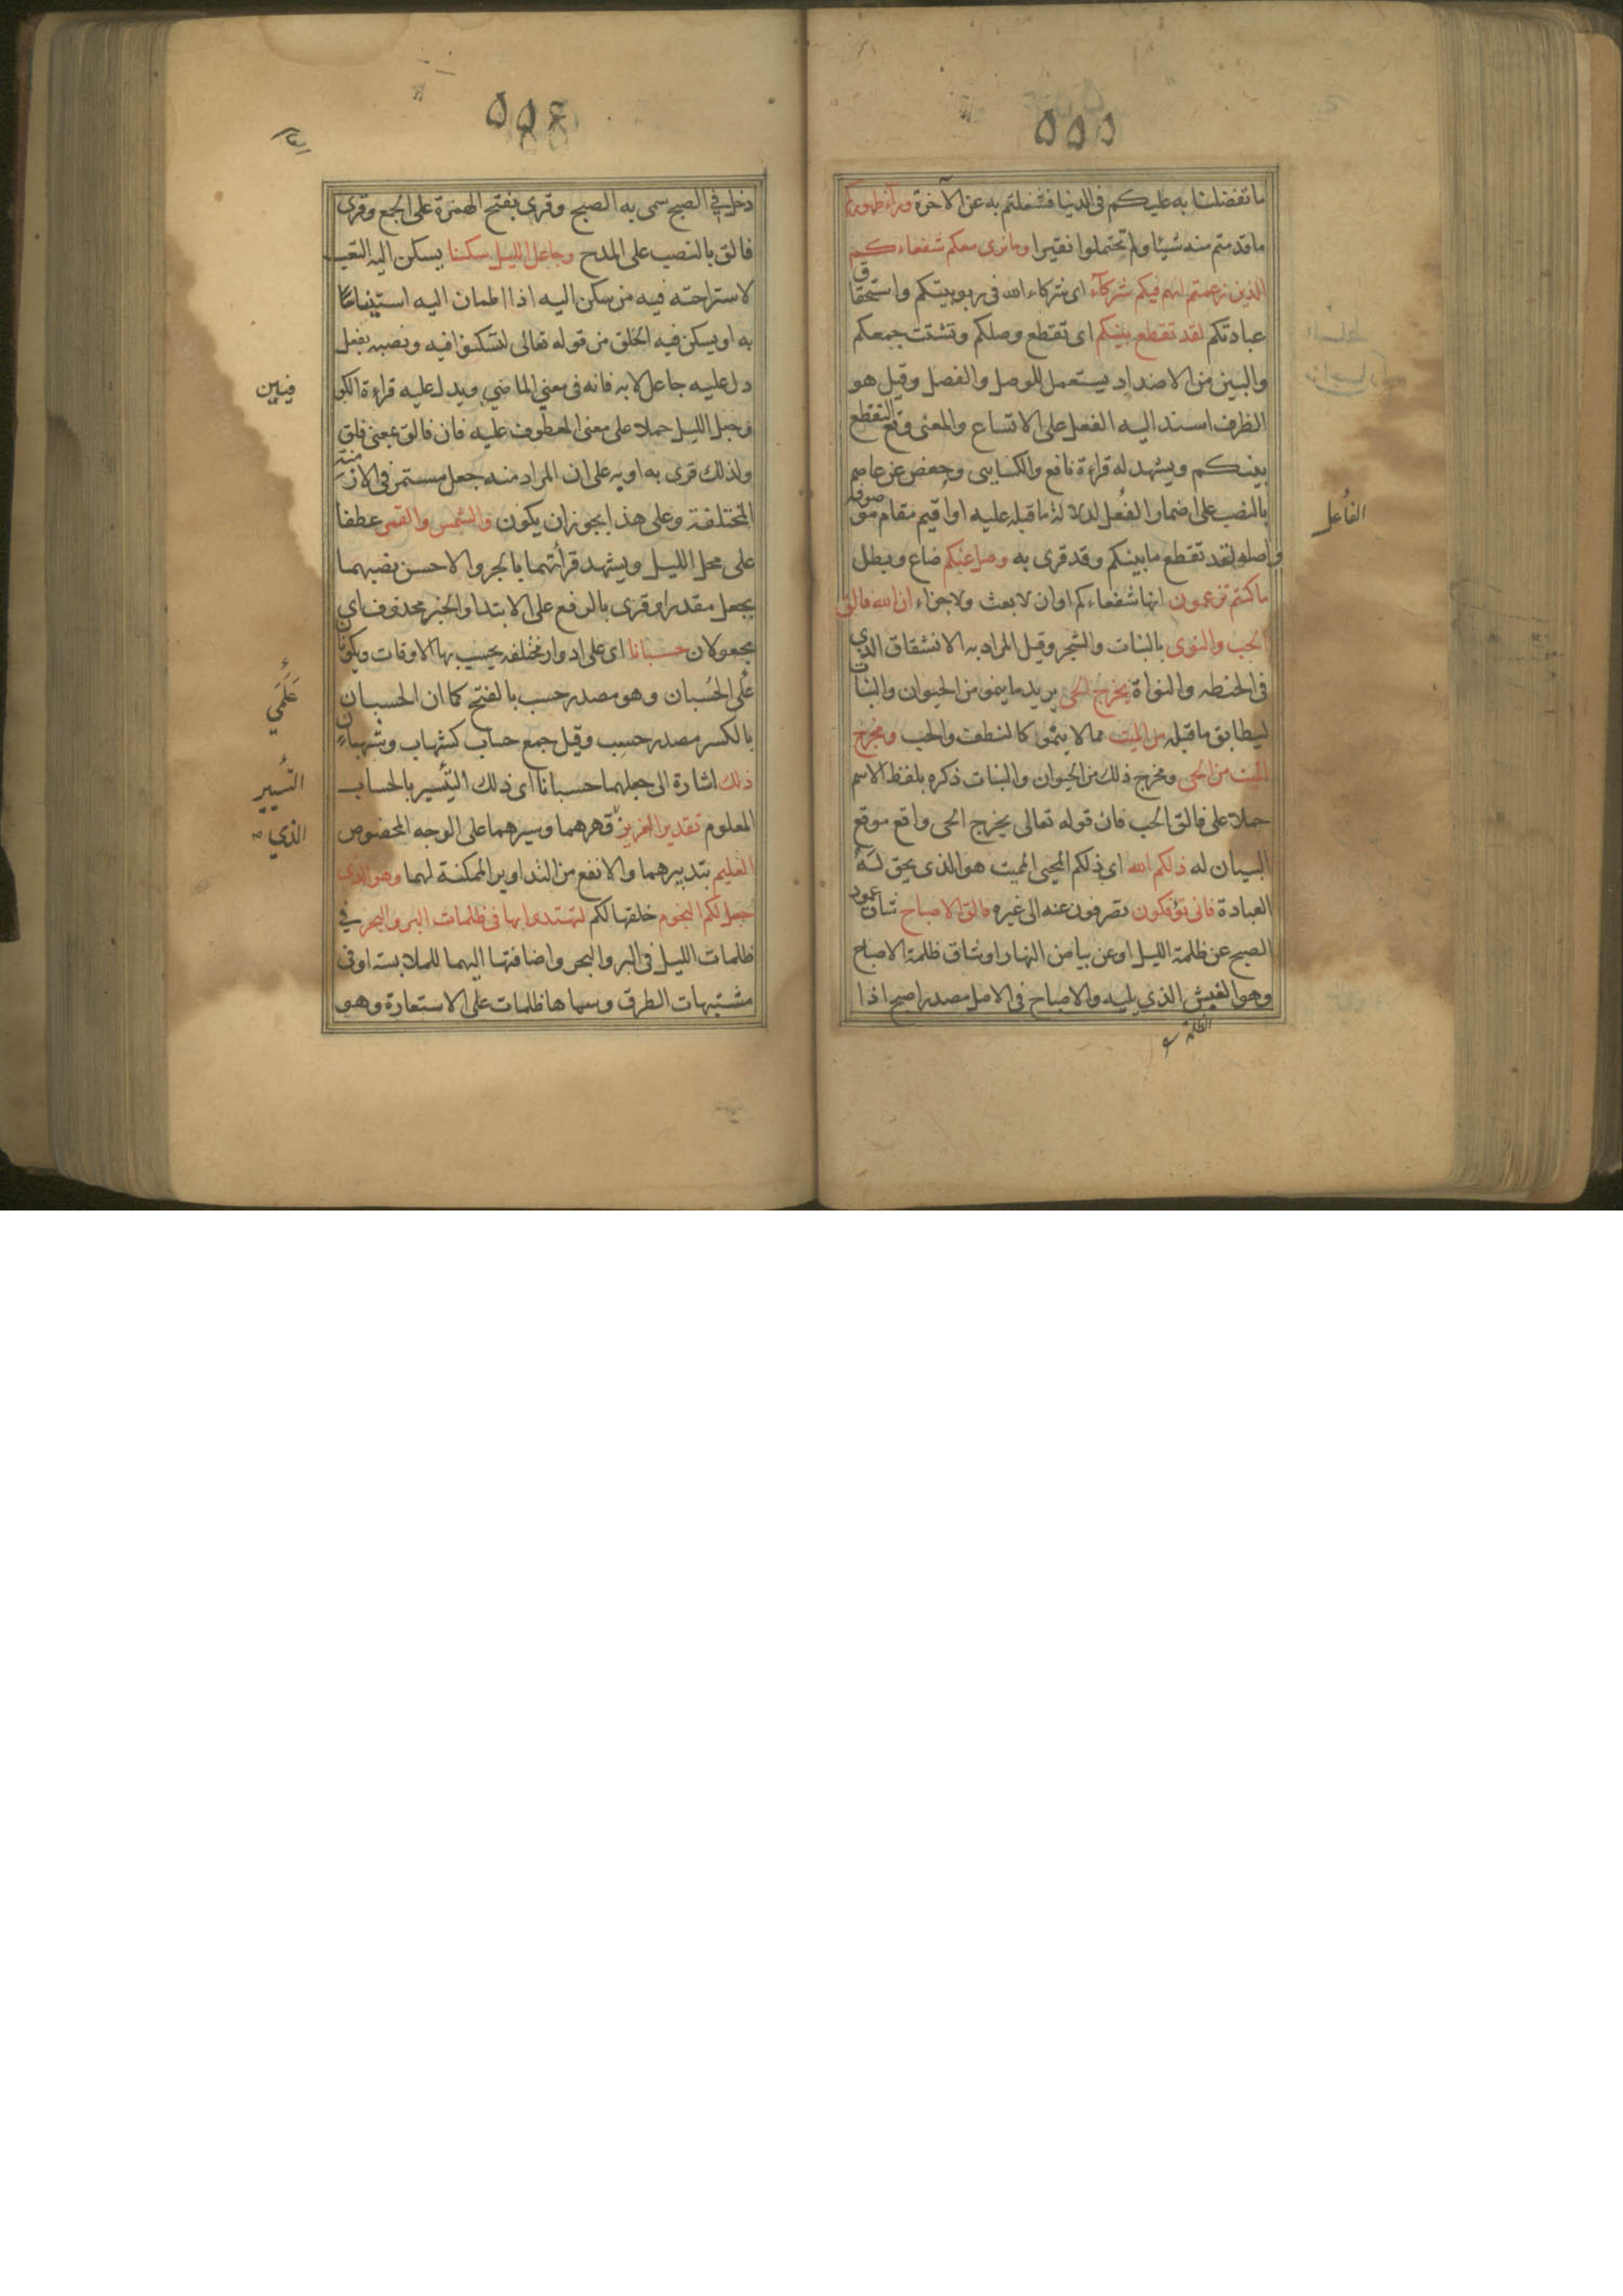 ٥٥٥
ما تفضلنا به عليكم فى الدنيا فشغلتم به عن الآخرة وراء ظهوركم
ما قدمتم منه شيئا ولم تحتملوا نقيرا وما نرى معكم شفعاءكم
الذين زعمتم انهم فيكم شركآء اى شركاء الله فى ربوبيتكم واستحقاق
عبادتكم لقد تقطع بينكم اى تقطع وصلكم وتشتت جمعكم
والبين من الاضداد يستعمل للوصل والفصل وقيل هو
الظرف اسند اليه الفعل على الاتساع والمعنى وقع التقطع
بينكم ويشهد له قراءة نافع والكسايى وحفص عن عاصم
بالنصب على اضمار الفعل لدلالة ما قبله عليه او اقيم مقام موصوفه
واصله لقد تقطع ما بينكم وقد قرى به وضل عنكم ضاع وبطل
ما كنتم تزعمون انها شفعاءكم او ان لا بعث ولا جزاء ان الله فالق
الحب والنوى بالنبات والشجر وقيل المراد به الانشقاق الذي
فى الحنطه والنواة يخرج الحى يريد ما ينمو من الحيوان والنبات
ليطابق ما قبله من الميت مما لا ينمو كالنطف والحب ومخرج
الميت من الحى ومخرج ذلك من الحيوان والنبات ذكره بلفظ الاسم
حملا على فالق الحب فان قوله تعالى يخرج الحى واقع موقع
البيان له ذلكم الله اي ذلكم المحيى المميت هو الذى يحق له
العبادة فانى تؤفكون تصرفون عنه الى غيره فالق الاصباح شاق عمود
الصبح عن ظلمة الليل او عن بياض النهار او شاق ظلمة الاصباح
وهو الغبش الذي يليه والاصباح فى الاصل مصدر اصبح اذا
الفاعل
الظلمة
٥٥٤
دخل في الصبح سمى به الصبح وقرى بفتح الهمزة على الجمع وقرى
فالق بالنصب على المدح وجاعل الليل سكنا يسكن اليه التعب
لاستراحته فيه من سكن اليه اذا اطمان اليه استيناسا
به او يسكن فيه الخلق من قوله تعالى لتسكنوا فيه ونصبه بفعل
دل عليه جاعل لا به فانه فى معنى الماضي ويدل عليه قراءة الكو
وجعل الليل حملا على معنى المعطوف عليه فان فالق بمعنى فلق
ولذلك قرى به او به على ان المراد منه جعل مستمر فى الازمنة
المختلفة وعلى هذا يجوز ان يكون والشمس والقمر عطفا
على محل الليل ويشهد قرأتهما بالجر والاحسن نصبهما
بجعل مقدرا وقرى بالرفع على الابتدا والخبر محذوف اى
مجعولان حسبانا اى على ادوار مختلفه يحسب بها الاوقات ويكونان
على الحسبان وهو مصدر حسب بالفتح كما ان الحسبان
بالكسر مصدر حسب وقيل جمع حساب كشهاب وشهبان
ذلك اشارة الى جعلهما حسبانا اى ذلك التيسير بالحساب
المعلوم تقدير العزيز قهرهما وسيرهما على الوجه المخصوص
العليم بتدبيرهما والانفع من التداوير الممكنة لهما وهو الذى
جعل لكم النجوم خلقها لكم لتهتدوا بها فى ظلمات البر والبحر في
ظلمات الليل فى البر والبحر واضافتها اليهما للملابسة او فى
مشتبهات الطرق وسماها ظلمات على الاستعارة وهو
فيين
التسيير
الذي